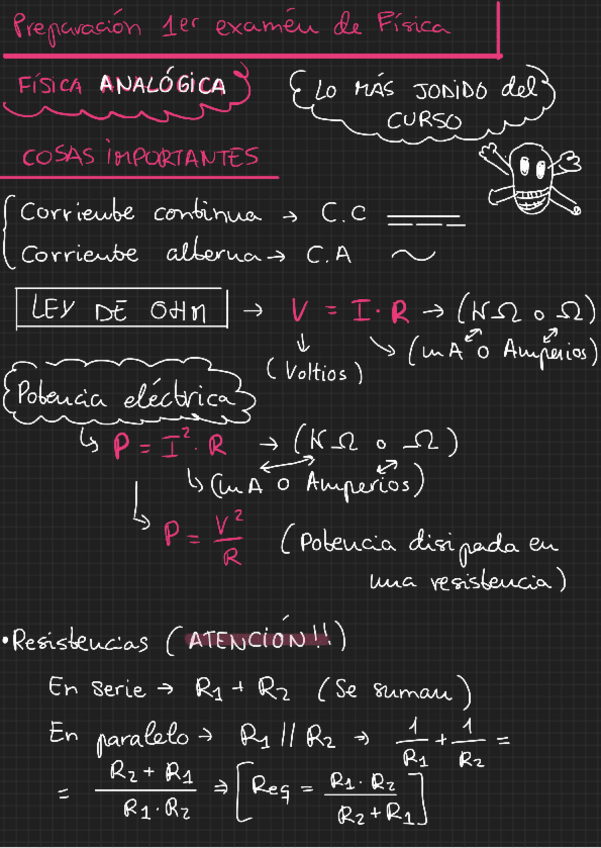 Preparación 1er exámén de Física
FÍSICA ANALÓGICA
LO MÁS JODIDO del
CURSO
COSAS IMPORTANTES
Corriente continua → C.C
Corriente alterna → C.A
LEY DE OHM → V = I · R → (KΩ o Ω)
(Voltios)
(mA o Amperios)
Potencia eléctrica
P = I² · R → (KΩ o Ω)
(mA o Amperios)
P = V²/R (Potencia disipada en
una resistencia)
• Resistencias (ATENCIÓN!!)
En serie → R1 + R2 (Se suman)
En paralelo → R1 // R2 → 1/R1 + 1/R2 =
= R2 + R1 / R1 · R2 ⇒ [Req = R1 · R2 / R2 + R1]